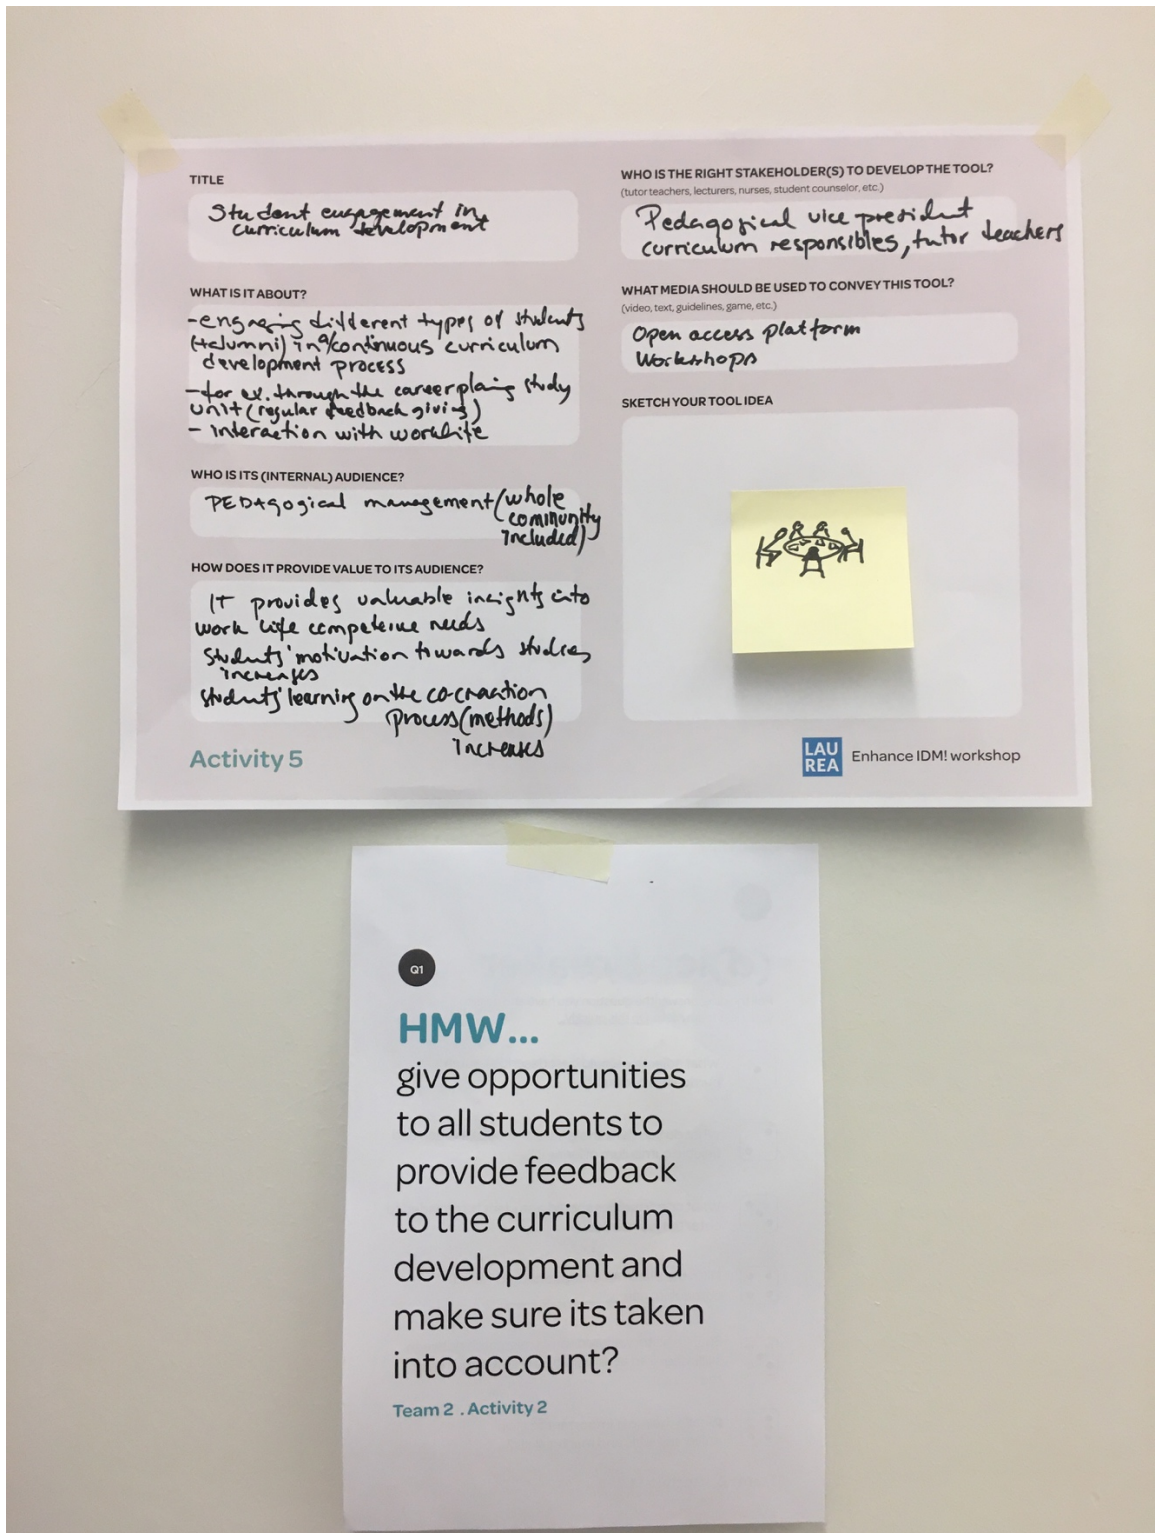 TITLE
Student engagement in
curriculum development
WHAT IS IT ABOUT?
-engaging different types of students
(+alumni) in a continuous curriculum
development process
-for ex. through the career plaing study
unit (regular feedback giving)
- interaction with worklife
WHO IS ITS (INTERNAL) AUDIENCE?
PEDAgogical management (whole
community
included)
HOW DOES IT PROVIDE VALUE TO ITS AUDIENCE?
It provides valuable insights into
work life competence needs
Students' motivation towards studies
increases
Students' learning on the co-creation
process (methods)
increases
Activity 5
WHO IS THE RIGHT STAKEHOLDER(S) TO DEVELOP THE TOOL?
(tutor teachers, lecturers, nurses, student counselor, etc.)
Pedagogical vice president
curriculum responsibles, tutor teachers
WHAT MEDIA SHOULD BE USED TO CONVEY THIS TOOL?
(video, text, guidelines, game, etc.)
Open access platform
Workshops
SKETCH YOUR TOOL IDEA
LAU
REA
Enhance IDM! workshop
Q1
HMW...
give opportunities
to all students to
provide feedback
to the curriculum
development and
make sure its taken
into account?
Team 2 . Activity 2